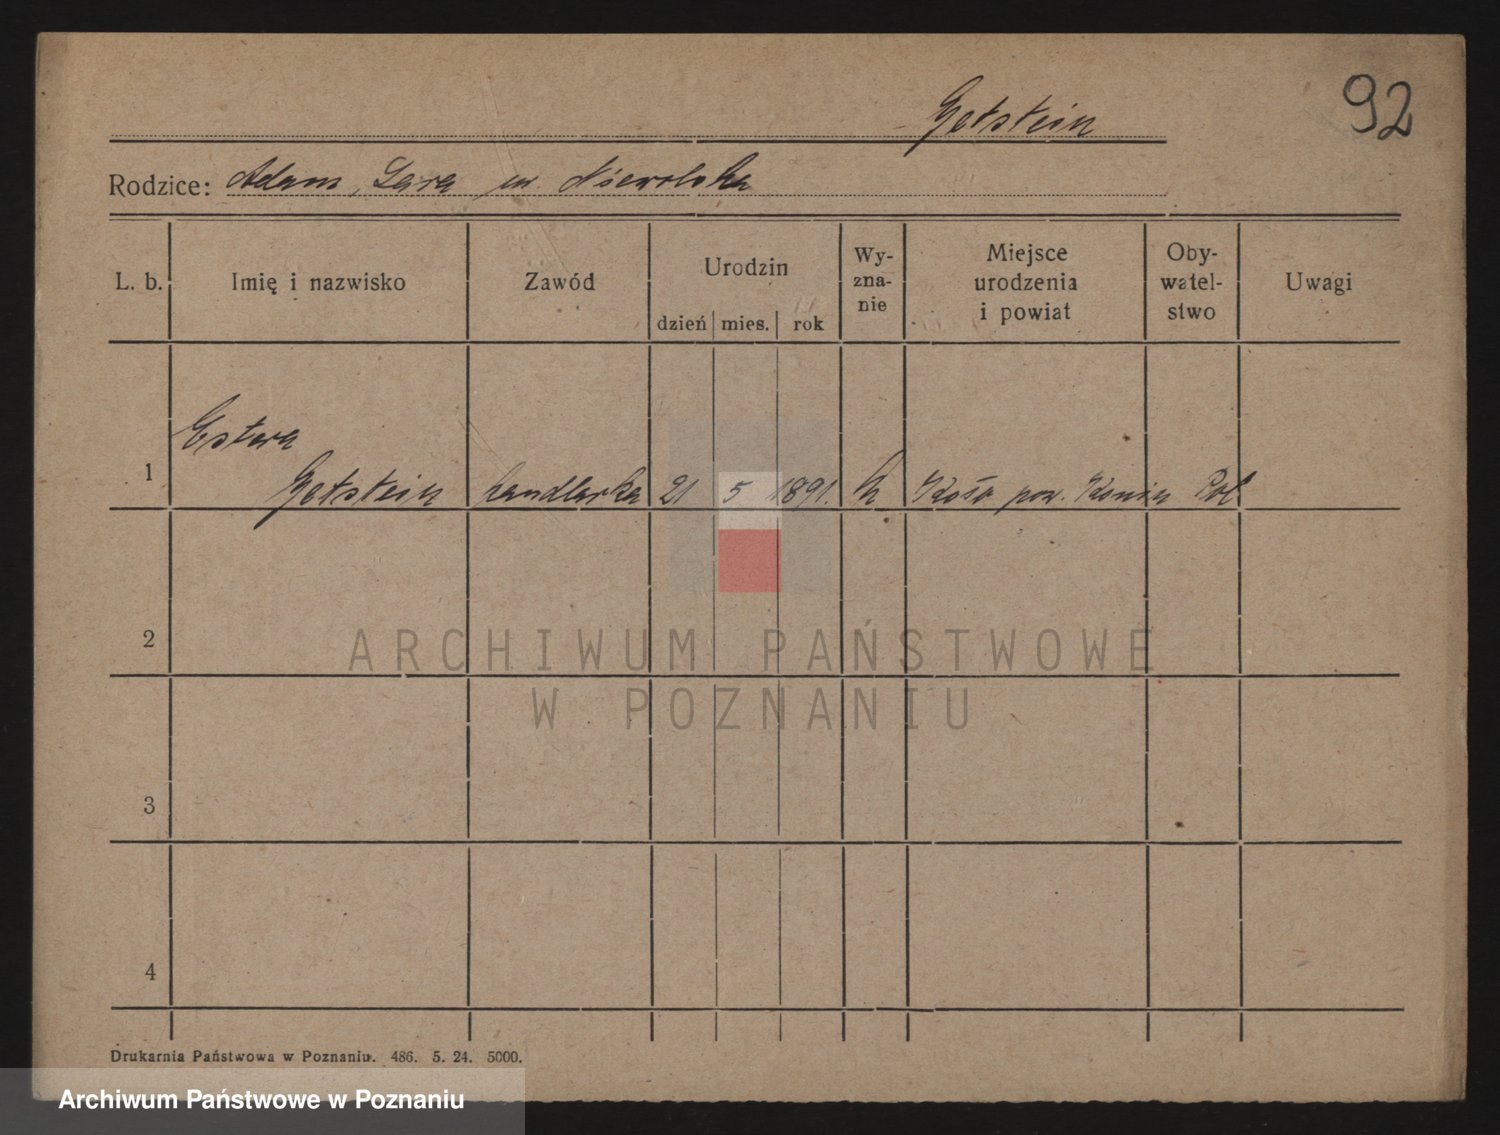 Getstein
92
Rodzice: Adam, Sara
L. b.
Imię i nazwisko
Zawód
Urodzin
dzień
mies.
rok
Wy-
zna-
nie
Miejsce
urodzenia
i powiat
Oby-
watel-
stwo
Uwagi
Estera
1 Getstein handlarka 21 5 1891. Koło pow. Konin Pol
2
3
4
ARCHIWUM PAŃSTWOWE
W POZNANIU
Drukarnia Państwowa w Poznaniu. 486. 5. 24. 5000.
Archiwum Państwowe w Poznaniu